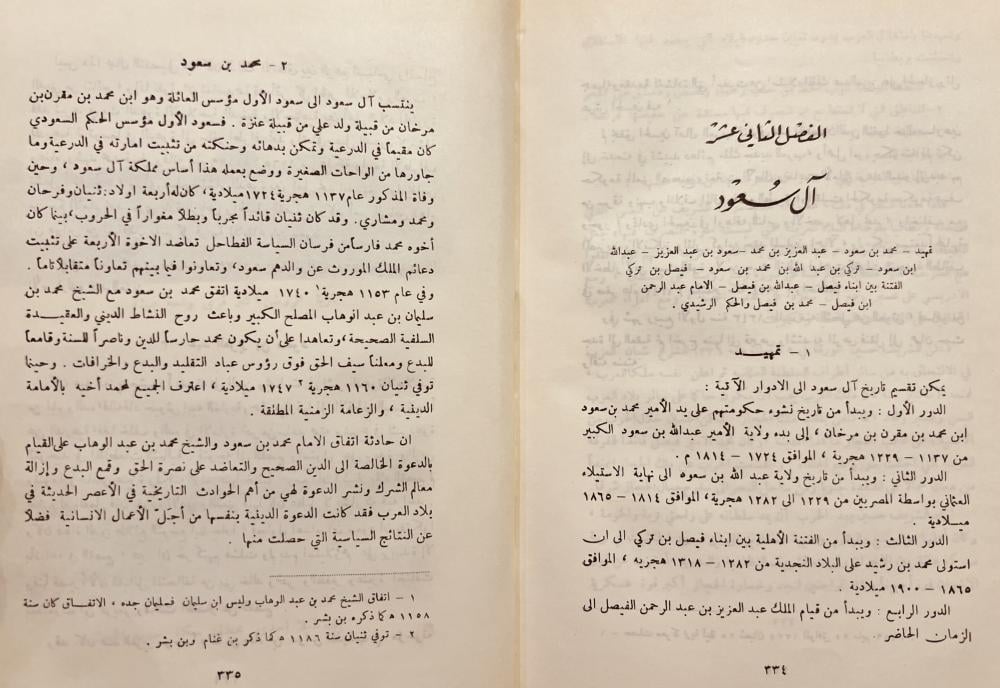 الفصل الثاني عشر
آل سعود
تمهيد – محمد بن سعود – عبد العزيز بن محمد – سعود بن عبد العزيز – عبدالله
ابن سعود – تركي بن عبد الله بن محمد بن سعود – فيصل بن تركي
الفتنة بين ابناء فيصل – عبدالله بن فيصل – الامام عبد الرحمن
ابن فيصل – محمد بن فيصل والحكم الرشيدي .
١ – تمهيد
يمكن تقسيم تاريخ آل سعود الى الادوار الآتية :
الدور الأول : ويبدأ من تاريخ نشوء حكومتهم على يد الأمير محمد بن سعود
ابن محمد بن مقرن بن مرخان ، إلى بدء ولاية الأمير عبدالله بن سعود الكبير
من ١١٣٧ – ١٢٢٩ هجرية ، الموافق ١٧٢٤ – ١٨١٤ م .
الدور الثاني : ويبدأ من تاريخ ولاية عبد الله بن سعوه الى نهاية الاستيلاء
العثماني بواسطة المصريين من ١٢٢٩ الى ١٢٨٢ هجرية، الموافق ١٨١٤ – ١٨٦٥
ميلادية .
الدور الثالث : ويبدأ من الفتنة الأهلية بين ابناء فيصل بن تركي الى ان
استولى محمد بن رشيد على البلاد النجدية من ١٢٨٢ – ١٣١٨ هجريه ، الموافق
١٨٦٥ – ١٩٠٠ ميلادية .
الدور الرابع : ويبدأ من قيام الملك عبد العزيز بن عبد الرحمن الفيصل الى
الزمان الحاضر .
٣٣٤
٢ – محمد بن سعود
ينتسب آل سعود الى سعود الأول مؤسس العائلة وهو ابن محمد بن مقرن بن
مرخان من قبيلة ولد علي من قبيلة عنزة . فسعود الأول مؤسس الحكم السعودي
كان مقيماً في الدرعية وتمكن بدهائه وحنكته من تثبيت امارته في الدرعية وما
جاورها من الواحات الصغيرة ووضع بعمله هذا أساس مملكة آل سعود ، وحين
وفاة المذكور عام ١١٣٧ هجرية ١٧٢٤ ميلادية ، كان له أربعة اولاد: ثنيان وفرحان
ومحمد ومشاري . وقد كان ثنيان قائداً مجرباً وبطلاً مغواراً في الحروب، بينما كان
أخوه محمد فارساً من فرسان السياسة الفطاحل تعاضد الاخوة الأربعة على تثبيت
دعائم الملك الموروث عن والدهم سعود، وتعاونوا فيما بينهم تعاوناً متقابلاً تاماً .
وفي عام ١١٥٣ هجرية ١ ١٧٤٠ ميلادية اتفق محمد بن سعود مع الشيخ محمد بن
سليمان بن عبد الوهاب المصلح الكبير وباعث روح النشاط الديني والعقيدة
السلفية الصحيحة، وتعاهدا على أن يكون محمد حارساً للدين وناصراً للسنة وقامعاً
للبدع ومعلناً سيف الحق فوق رؤوس عباد التقليد والبدع والخرافات . وحينما
توفي ثنيان ١١٦٠ هجرية ٢ ١٧٤٧ ميلادية ، اعترف الجميع لمحمد أخيه بالأمامة
الدينية ، والزعامة الزمنية المطلقة .
ان حادثة اتفاق الامام محمد بن سعود والشيخ محمد بن عبد الوهاب على القيام
بالدعوة الخالصة الى الدين الصحيح والتعاضد على نصرة الحق وقمع البدع وإزالة
معالم الشرك ونشر الدعوة لهي من أهم الحوادث التاريخية في الأعصر الحديثة في
بلاد العرب فقد كانت الدعوة الدينية بنفسها من أجلّ الأعمال الانسانية فضلاً
عن النتائج السياسية التي حصلت منها .
١ – اتفاق الشيخ محمد بن عبد الوهاب وليس ابن سليمان فسليمان جده ، الاتفاق كان سنة
١١٥٨ ه كما ذكره بن بشر .
٢ – توفي ثنيان سنة ١١٨٦ ه كما ذكر بن غنام وبن بشر .
٣٣٥